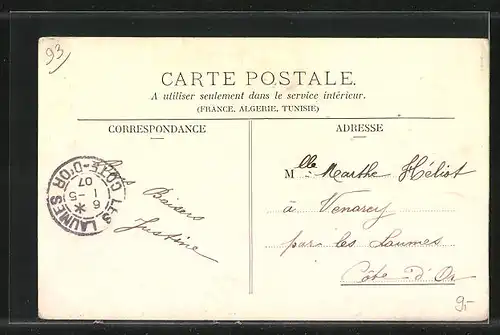 93
CARTE POSTALE.
A utiliser seulement dans le service intérieur.
(FRANCE, ALGERIE, TUNISIE)
CORRESPONDANCE
ADRESSE
Bons Baisers
Justine
LES LAUMES
COTE-D'OR
6
1 - 5
07
Mlle Marthe Héliot
à Venarey
par les Laumes
Côte-d'Or
9.-